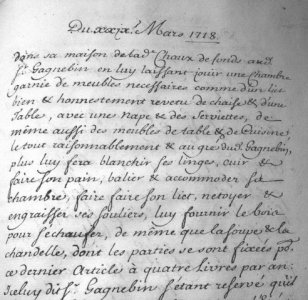 Du xxix.e Mars 1718.
dans sa maison de lad.e Chaux de fonds aud
S.r Gagnebin en luy laissant jouir une Chambre
garnie de meubles necessaires comme d'un lict
bien & honnestement revetu de chaise & d'une
Table, avec une Nape & des Serviettes, de
même aussi des meubles de table & de Cuisine,
le tout raisonnablement & au gré dud. Gagnebin,
plus luy fera blanchir ses linges, cuir &
faire son pain, balier & accommoder sa
chambre, faire faire son lict, netoyer &
engraisser ses souliers, luy fournir le bois
pour se chaufer, de même que la soupe & la
chandelle, dont les parties se sont fixées po.
ce dernier Article à quatre livres par an:
Iceluy dit S.r Gagnebin s'étant reservé qu'il